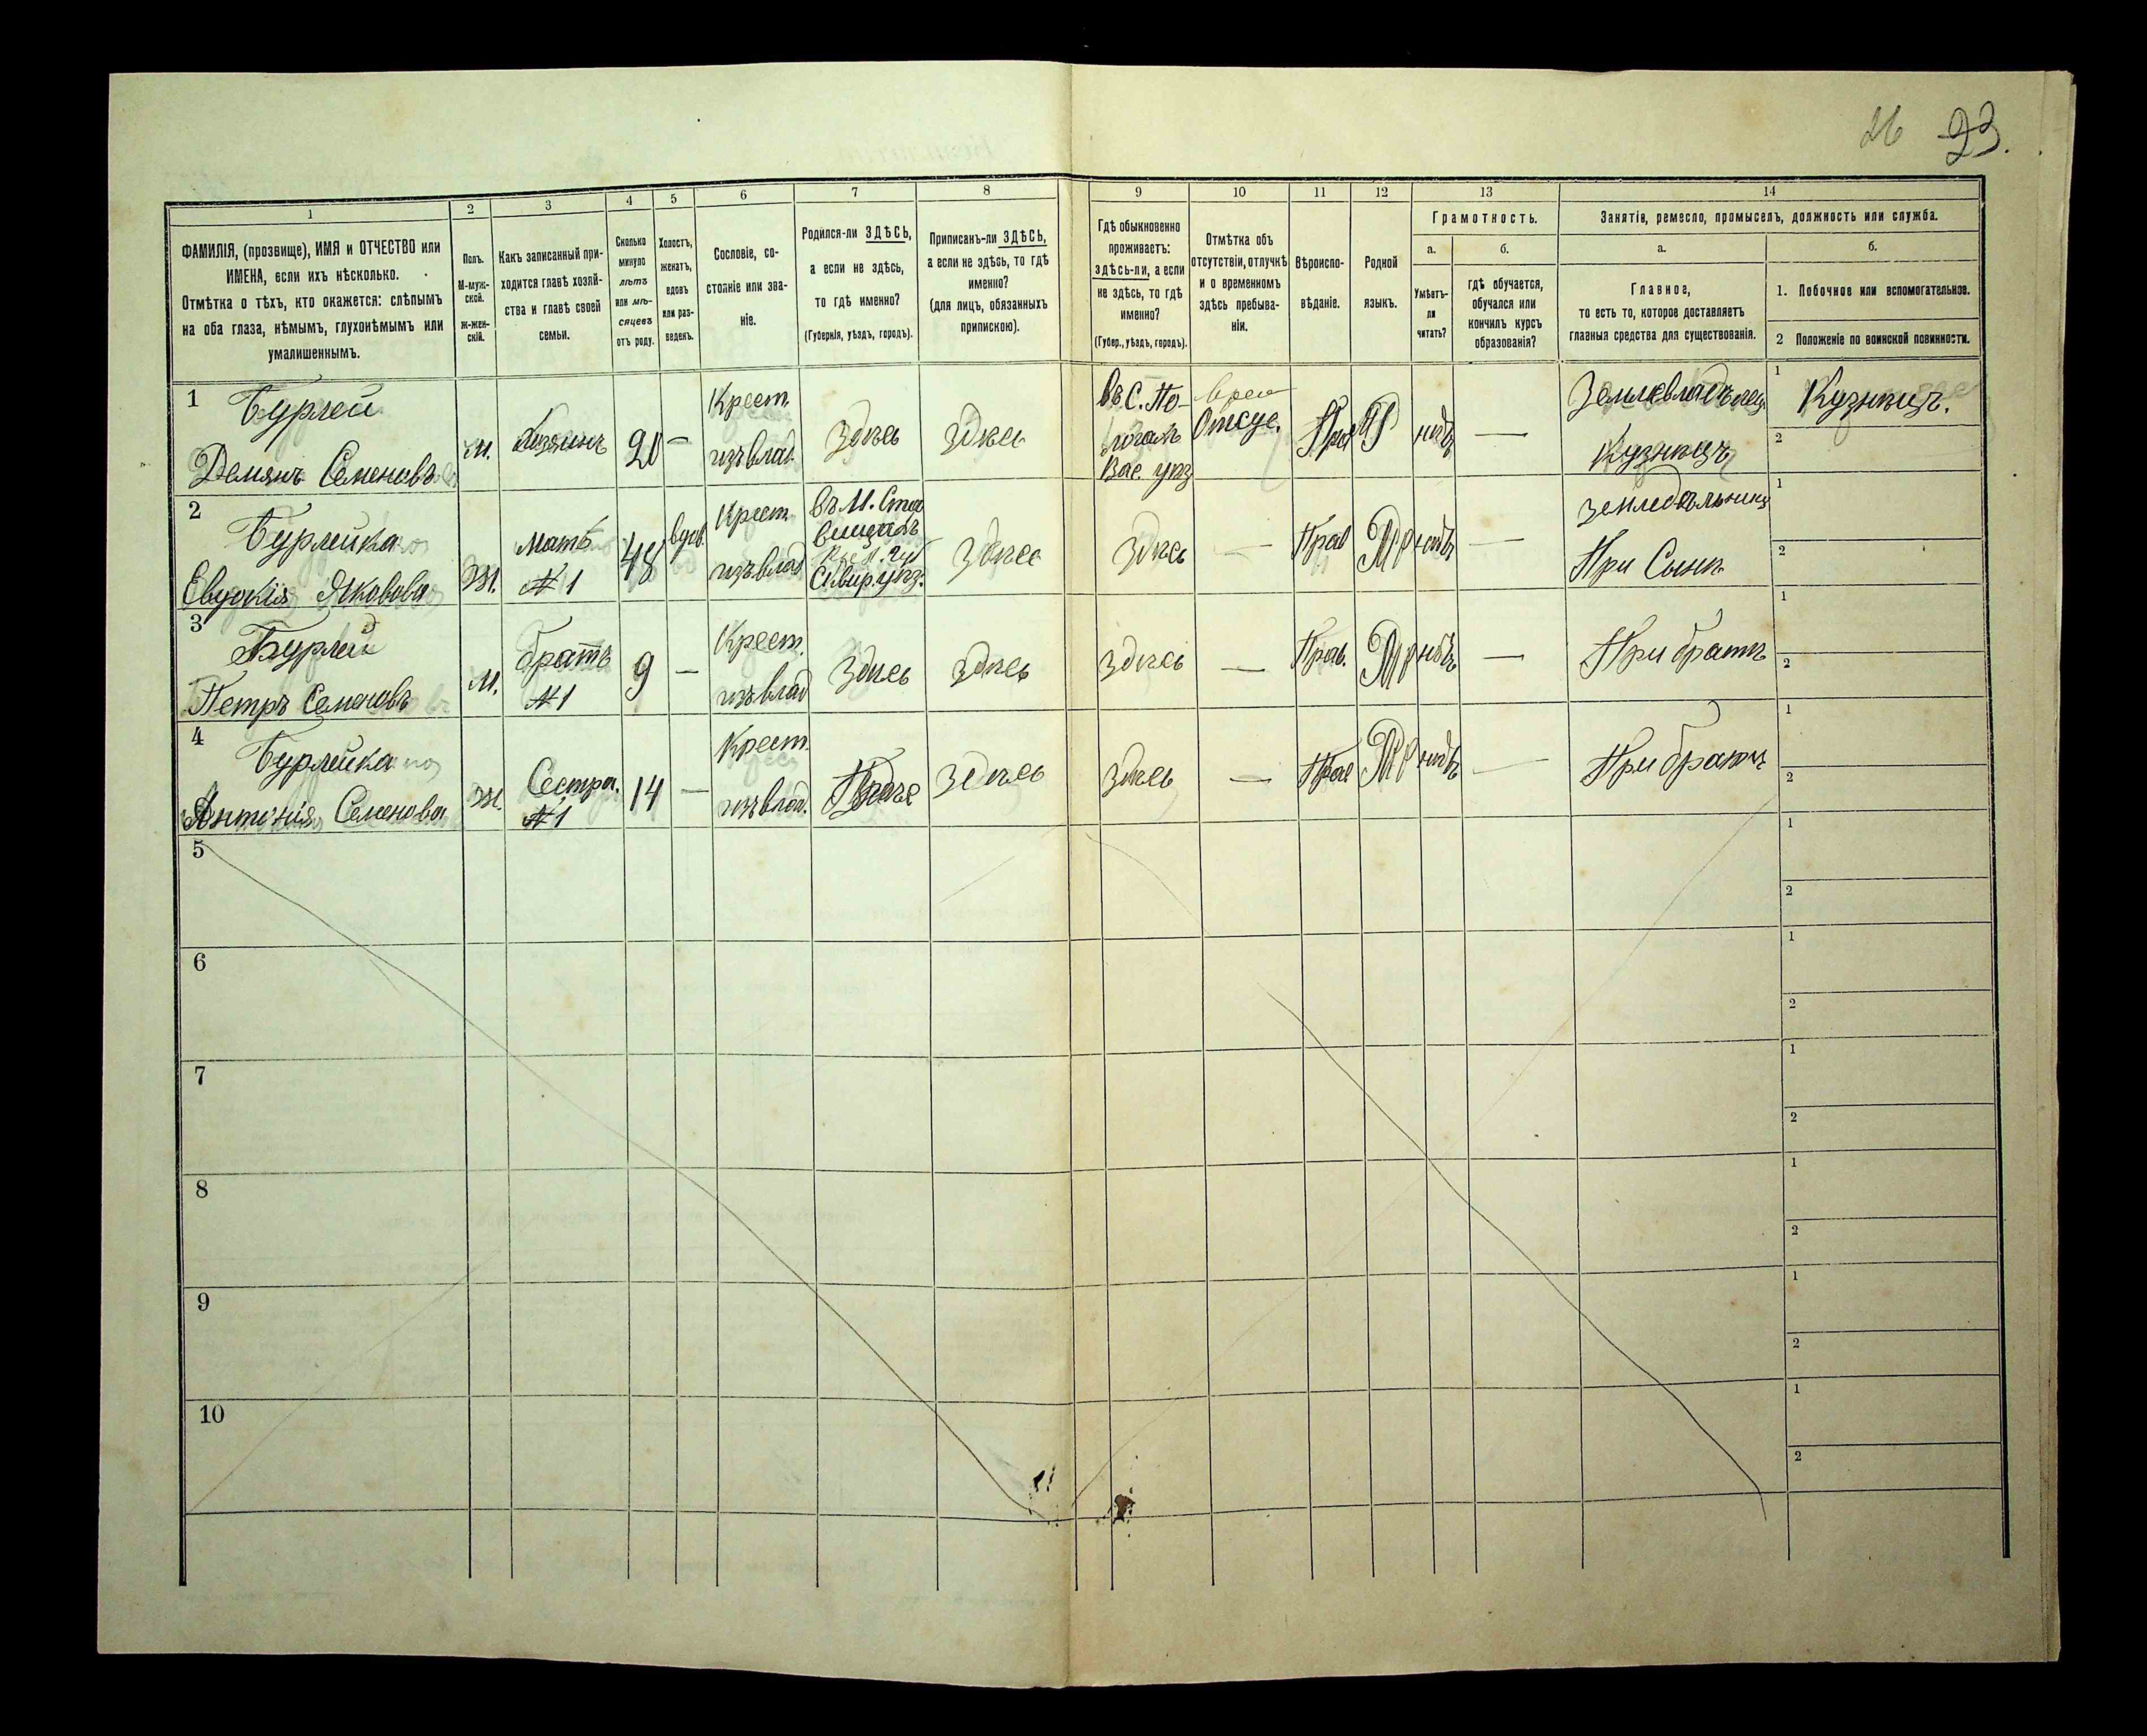 26 23.
1
ФАМИЛІЯ, (прозвище), ИМЯ и ОТЧЕСТВО или
ИМЕНА, если ихъ нѣсколько.
Отмѣтка о тѣхъ, кто окажется: слѣпымъ
на оба глаза, нѣмымъ, глухонѣмымъ или
умалишеннымъ.
2
Полъ.
М-муж-
ской.
Ж-жен-
скій.
3
Какъ записанный при-
ходится главѣ хозяй-
ства и главѣ своей
семьи.
4
Сколько
минуло
лѣтъ
или мѣ-
сяцевъ
отъ роду.
5
Холостъ,
женатъ,
вдовъ
или раз-
веденъ.
6
Сословіе, со-
стояніе или зва-
ніе.
7
Родился-ли ЗДѢСЬ,
а если не здѣсь,
то гдѣ именно?
(Губернія, уѣздъ, городъ).
8
Приписанъ-ли ЗДѢСЬ,
а если не здѣсь, то гдѣ
именно?
(для лицъ, обязанныхъ
припискою).
9
Гдѣ обыкновенно
проживаетъ:
здѣсь-ли, а если
не здѣсь, то гдѣ
именно?
(Губер., уѣздъ, городъ).
10
Отмѣтка объ
отсутствіи, отлучкѣ
и о временномъ
здѣсь пребыва-
ніи.
11
Вѣроиспо-
вѣданіе.
12
Родной
языкъ.
13
Грамотность.
а.
Умѣетъ-
ли
читать?
б.
гдѣ обучается,
обучался или
кончилъ курсъ
образованія?
14
Занятіе, ремесло, промыселъ, должность или служба.
а.
Главное,
то есть то, которое доставляетъ
главныя средства для существованія.
б.
1. Побочное или вспомогательное.
2 Положеніе по воинской повинности.
1
Бурлей
Демянъ Семеновъ
М.
Хозяинъ
20
—
Крест.
изъ влад.
Здѣсь
Здѣсь
въ С. По-
Вас. уѣз
Отсут.
Прав
нѣтъ
—
Кузнецъ
1
Кузнецъ.
2
2
Бурлейка
Евдокія Яковова
Ж.
Мать
№ 1
48
вдов.
Крест.
изъ влад
въ М. Ста
вищахъ
уѣз.
Здѣсь
Здѣсь
—
Прав
нѣтъ
—
При Сынѣ
1
2
3
Бурлей
Петръ Семеновъ
М.
братъ
№ 1
9
—
Крест.
изъ влад
Здѣсь
Здѣсь
Здѣсь
—
Прав.
нѣтъ
—
При братѣ
1
2
4
Бурлейка
Антонія Семенова
Ж.
Сестра.
№ 1
14
—
Крест.
изъ влад.
Здѣсь
Здѣсь
—
Прав
нѣтъ
—
При братѣ
1
2
5
1
2
6
1
2
7
1
2
8
1
2
9
1
2
10
1
2